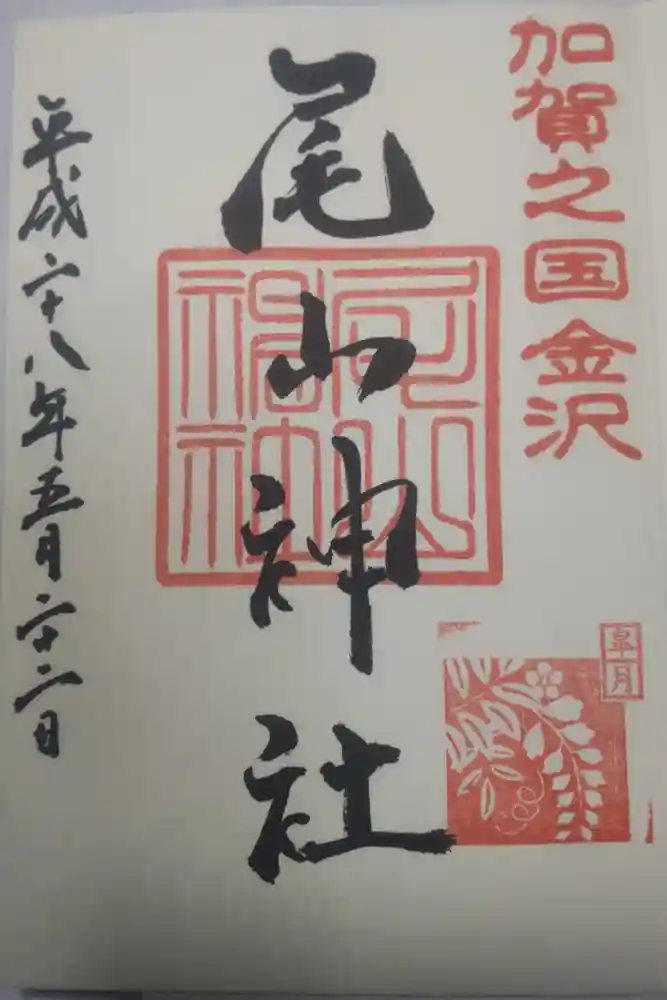 加賀之国金沢
尾山神社
尾山神社
皐月
平成二十八年五月二十二日